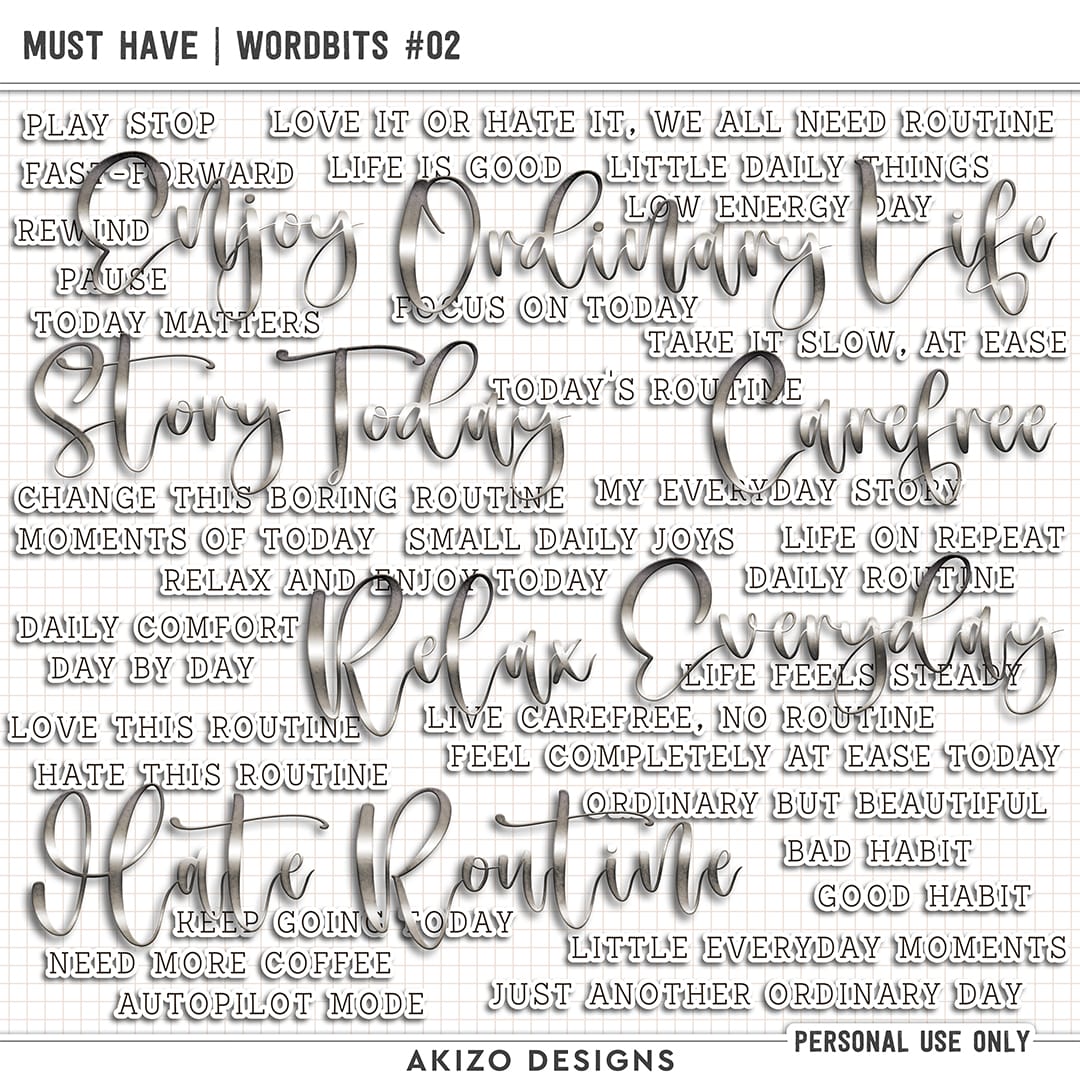 MUST HAVE | WORDBITS #02
PLAY STOP
LOVE IT OR HATE IT, WE ALL NEED ROUTINE
FAST-FORWARD
LIFE IS GOOD
LITTLE DAILY THINGS
LOW ENERGY DAY
REWIND
Enjoy Ordinary Life
PAUSE
FOCUS ON TODAY
TODAY MATTERS
TAKE IT SLOW, AT EASE
TODAY'S ROUTINE
Story Today
Carefree
CHANGE THIS BORING ROUTINE
MY EVERYDAY STORY
MOMENTS OF TODAY
SMALL DAILY JOYS
LIFE ON REPEAT
RELAX AND ENJOY TODAY
DAILY ROUTINE
DAILY COMFORT
DAY BY DAY
Relax
Everyday
LIFE FEELS STEADY
LOVE THIS ROUTINE
LIVE CAREFREE, NO ROUTINE
FEEL COMPLETELY AT EASE TODAY
HATE THIS ROUTINE
ORDINARY BUT BEAUTIFUL
Hate Routine
BAD HABIT
GOOD HABIT
KEEP GOING TODAY
LITTLE EVERYDAY MOMENTS
NEED MORE COFFEE
JUST ANOTHER ORDINARY DAY
AUTOPILOT MODE
PERSONAL USE ONLY
AKIZO DESIGNS